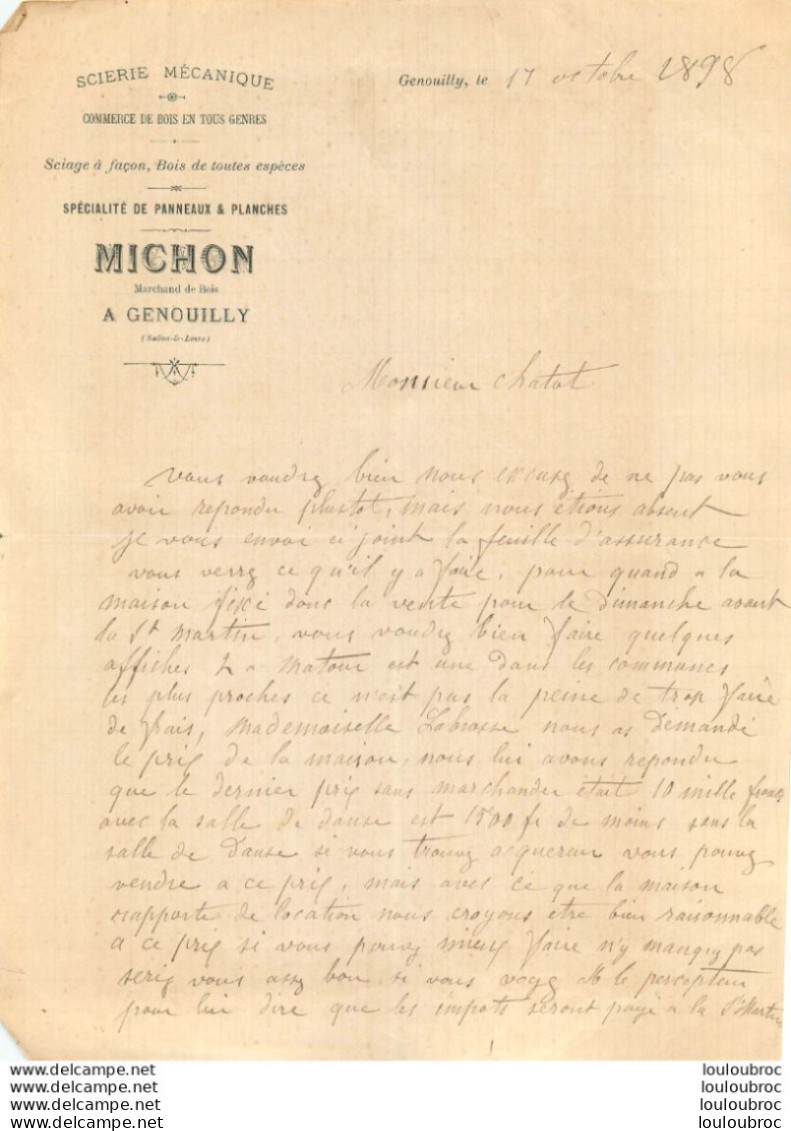 SCIERIE MÉCANIQUE
COMMERCE DE BOIS EN TOUS GENRES
Sciage à façon, Bois de toutes espèces
SPÉCIALITÉ DE PANNEAUX & PLANCHES
MICHON
Marchand de Bois
A GENOUILLY
(Saône-&-Loire)
Genouilly, le 17 octobre 1898
Monsieur Chatot
vous voudrez bien nous excusez de ne pas vous
avoir repondu plustot, mais nous étions absent
je vous envoi ci joint la feuille d'assurance
vous verrez ce qu'il y a faire, pour quand a la
maison fixé donc la vente pour le dimanche avant
la St Martin, vous voudrez bien faire quelques
affiches 2 a Matour est une dans les communes
les plus proches ce n'est pas la peine de trop faire
de frais, Mademoiselle Labrosse nous as demandé
le prix de la maison, nous lui avons repondu
que le dernier prix sans marchander était 10 mille francs
avec la salle de danse est 1500 fr de moins sans la
salle de danse si vous trouvez acquereur vous pouvez
vendre a ce prix, mais avec ce que la maison
rapporte de location nous croyons etre bien raisonnable
a ce prix si vous pouvez mieux faire n'y manquez pas
serez vous assez bon si vous voyez M le percepteur
pour lui dire que les impots seront payé a la St Martin
www.delcampe.net louloubroc
www.delcampe.net louloubroc
www.delcampe.net louloubroc
www.delcampe.net louloubroc